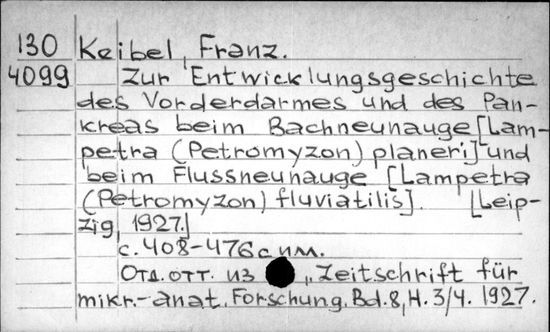 130 Keibel, Franz.
4099 Zur Entwicklungsgeschichte
des Vorderdarmes und des Pan-
kreas beim Bachneunauge [Lam-
petra (Petromyzon) planeri] und
beim Flussneunauge [Lampetra
(Petromyzon) fluviatilis]. [Leip-
zig, 1927.]
с. 408-476 с илл.
Отд. отт. из "Zeitschrift für
mikr.-anat. Forschung. Bd. 8, H. 3/4. 1927.